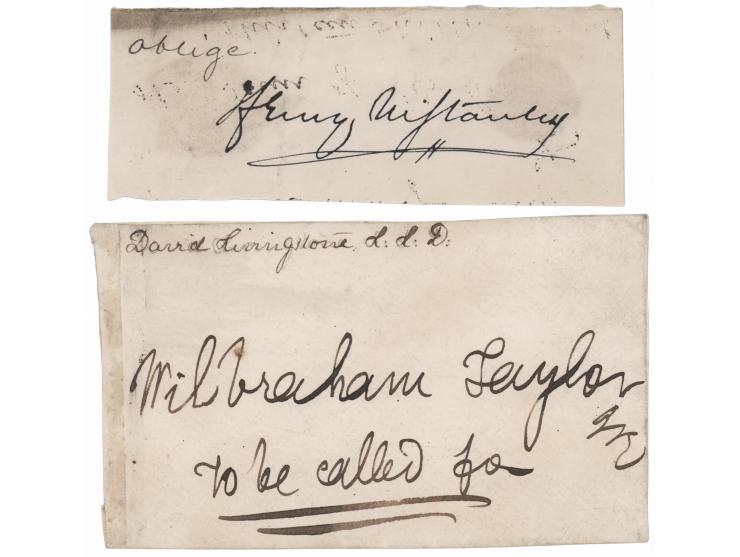 oblige.
Henry M Stanley
David Livingstone, L. L. D:
Wilbraham Taylor
To be called for